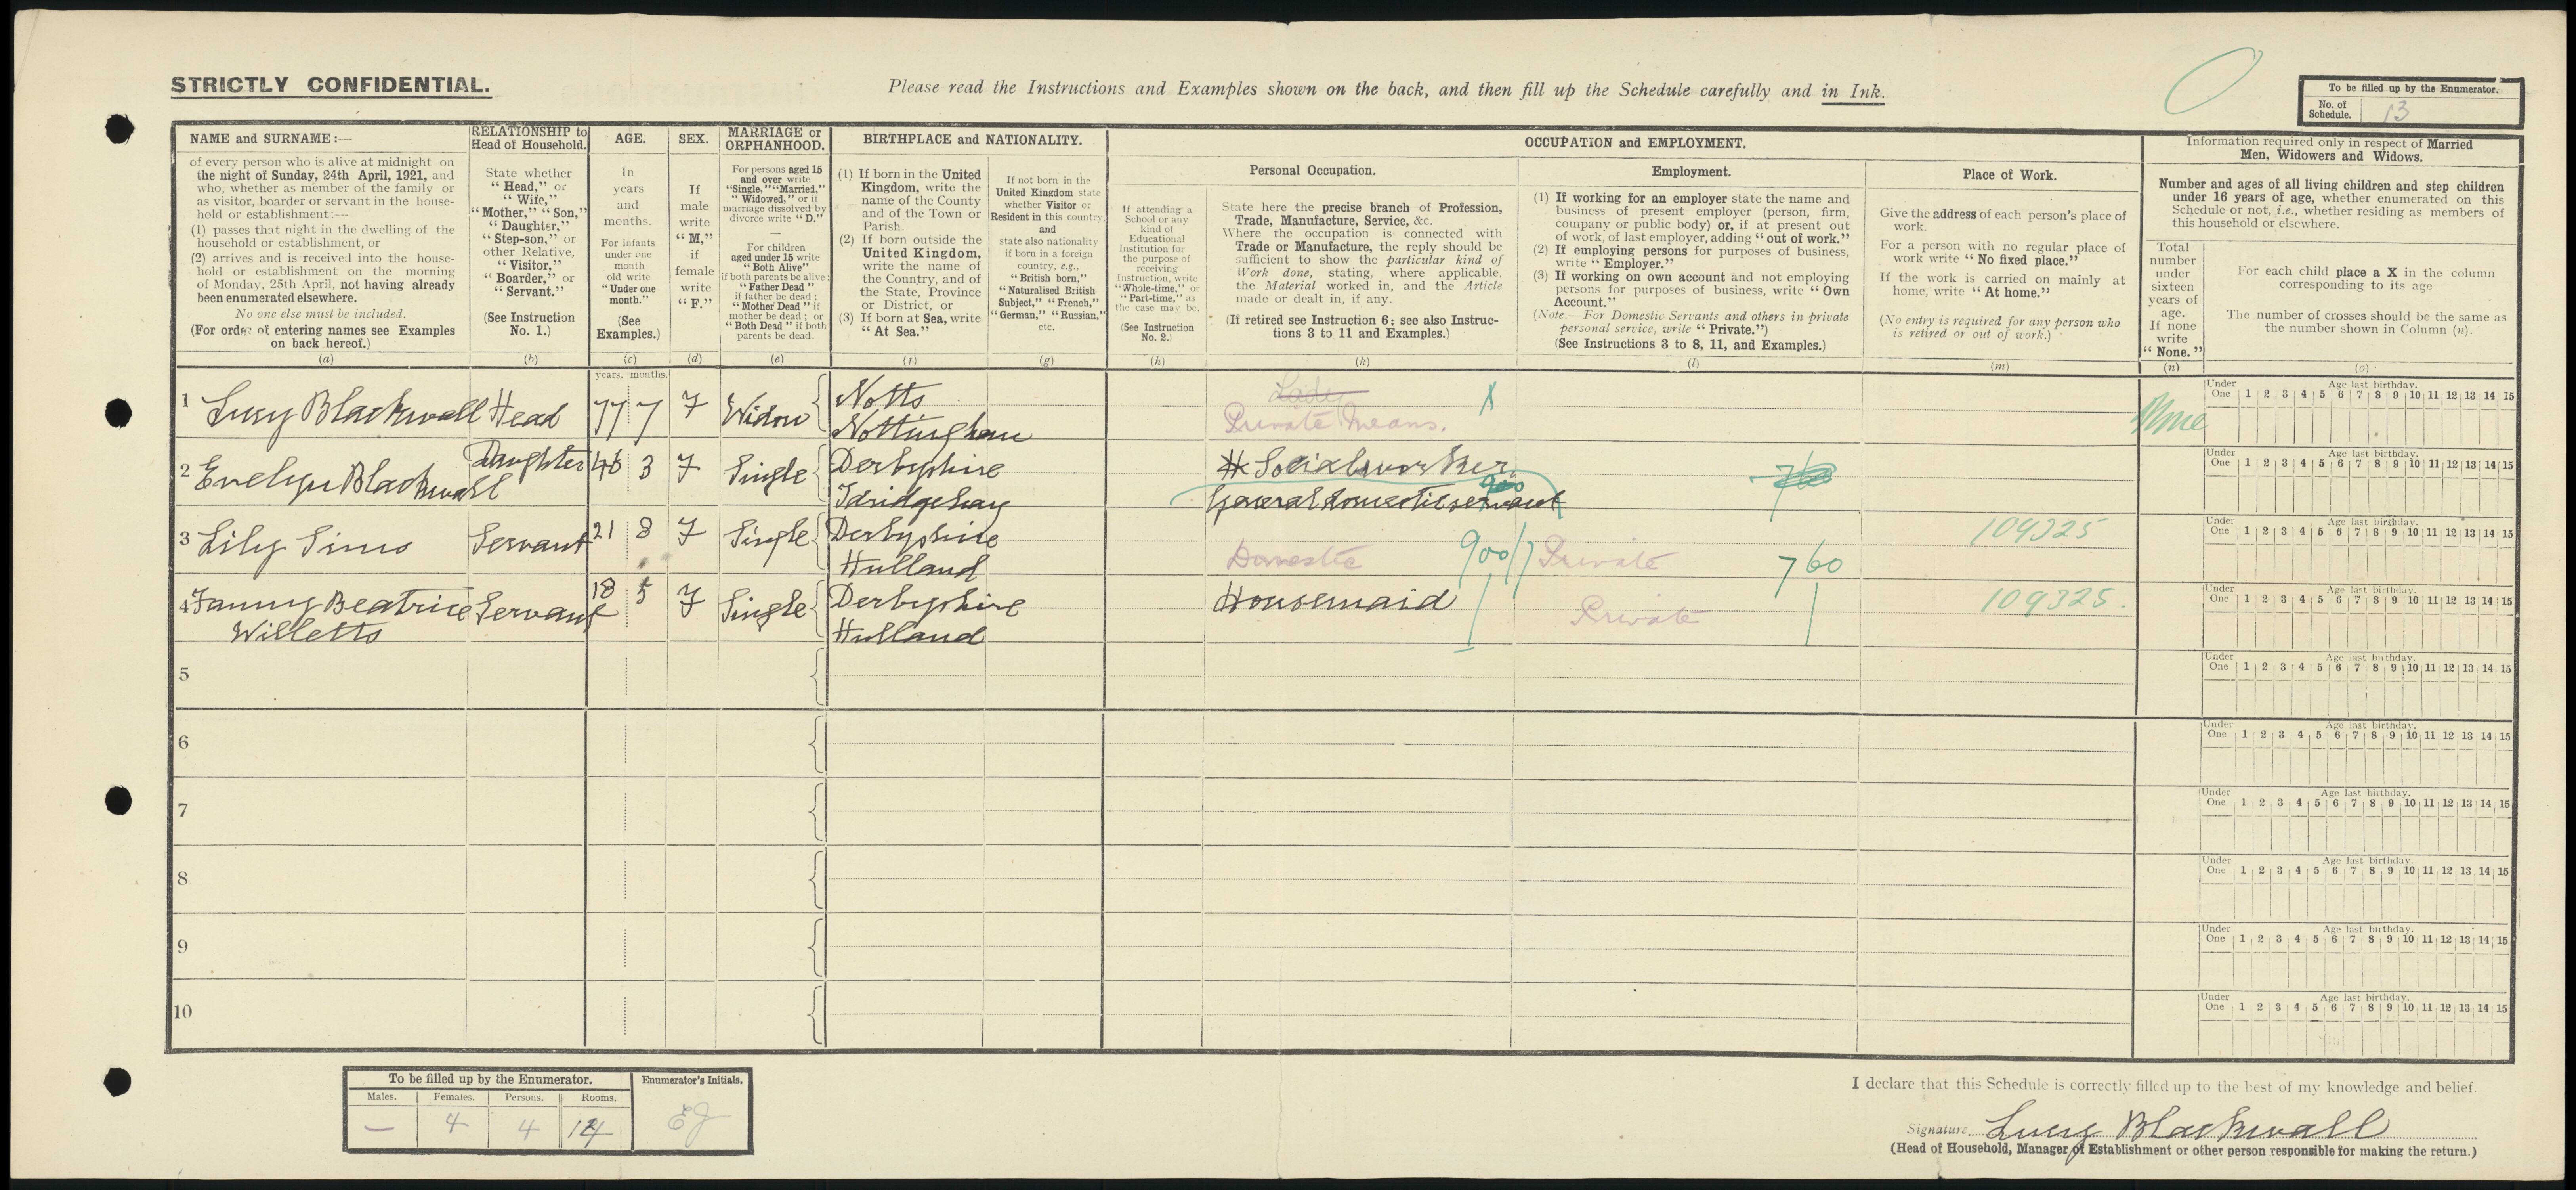 STRICTLY CONFIDENTIAL.
Please read the Instructions and Examples shown on the back, and then fill up the Schedule carefully and in Ink.
To be filled up by the Enumerator.
No. of Schedule. 13
NAME and SURNAME:—
of every person who is alive at midnight on
the night of Sunday, 24th April, 1921, and
who, whether as member of the family or
as visitor, boarder or servant in the house-
hold or establishment:—
(1) passes that night in the dwelling of the
household or establishment, or
(2) arrives and is received into the house-
hold or establishment on the morning
of Monday, 25th April, not having already
been enumerated elsewhere.
No one else must be included.
(For order of entering names see Examples
on back hereof.)
(a)
RELATIONSHIP to
Head of Household.
State whether
"Head," or
"Wife,"
"Mother," "Son,"
"Daughter,"
"Step-son," or
other Relative,
"Visitor,"
"Boarder," or
"Servant."
(See Instruction
No. 1.)
(b)
AGE.
In
years
and
months.
For infants
under one
month
old write
"Under one
month."
(See
Examples.)
(c)
SEX.
If
male
write
"M,"
if
female
write
"F."
(d)
MARRIAGE or
ORPHANHOOD.
For persons aged 15
and over write
"Single," "Married,"
"Widowed," or if
marriage dissolved by
divorce write "D."
—
For children
aged under 15 write
"Both Alive"
if both parents be alive;
"Father Dead"
if father be dead;
"Mother Dead" if
mother be dead; or
"Both Dead" if both
parents be dead.
(e)
BIRTHPLACE and NATIONALITY.
(1) If born in the United
Kingdom, write the
name of the County
and of the Town or
Parish.
(2) If born outside the
United Kingdom,
write the name of
the Country, and of
the State, Province
or District, or
(3) If born at Sea, write
"At Sea."
(f)
If not born in the
United Kingdom state
whether Visitor or
Resident in this country,
and
state also nationality
if born in a foreign
country, e.g.,
"British born,"
"Naturalised British
Subject," "French,"
"German," "Russian,"
etc.
(g)
OCCUPATION and EMPLOYMENT.
If attending a
School or any
kind of
Educational
Institution for
the purpose of
receiving
Instruction, write
"Whole-time," or
"Part-time," as
the case may be.
(See Instruction
No. 2.)
(h)
Personal Occupation.
State here the precise branch of Profession,
Trade, Manufacture, Service, &c.
Where the occupation is connected with
Trade or Manufacture, the reply should be
sufficient to show the particular kind of
Work done, stating, where applicable,
the Material worked in, and the Article
made or dealt in, if any.
(If retired see Instruction 6; see also Instruc-
tions 3 to 11 and Examples.)
(k)
Employment.
(1) If working for an employer state the name and
business of present employer (person, firm,
company or public body) or, if at present out
of work, of last employer, adding "out of work."
(2) If employing persons for purposes of business,
write "Employer."
(3) If working on own account and not employing
persons for purposes of business, write "Own
Account."
(Note.—For Domestic Servants and others in private
personal service, write "Private.")
(See Instructions 3 to 8, 11, and Examples.)
(l)
Place of Work.
Give the address of each person's place of
work.
For a person with no regular place of
work write "No fixed place."
If the work is carried on mainly at
home, write "At home."
(No entry is required for any person who
is retired or out of work.)
(m)
Information required only in respect of Married
Men, Widowers and Widows.
Number and ages of all living children and step children
under 16 years of age, whether enumerated on this
Schedule or not, i.e., whether residing as members of
this household or elsewhere.
Total
number
under
sixteen
years of
age.
If none
write
"None."
(n)
For each child place a X in the column
corresponding to its age
The number of crosses should be the same as
the number shown in Column (n).
(o)
years. months.
1 Lucy Blackwall Head 77 7 F Widow Notts Nottingham Lady X None
Private Means.
Under One Age last birthday. 1 2 3 4 5 6 7 8 9 10 11 12 13 14 15
2 Evelyn Blackwall Daughter 46 3 F Single Derbyshire Idridgehay Social worker 760
General domestic servant 900
Under One Age last birthday. 1 2 3 4 5 6 7 8 9 10 11 12 13 14 15
3 Lily Sims Servant 21 8 F Single Derbyshire Hulland Domestic 900/7 Private 760 109325
Under One Age last birthday. 1 2 3 4 5 6 7 8 9 10 11 12 13 14 15
4 Fanny Beatrice Willetts Servant 18 5 F Single Derbyshire Hulland Housemaid Private 109325.
Under One Age last birthday. 1 2 3 4 5 6 7 8 9 10 11 12 13 14 15
5
Under One Age last birthday. 1 2 3 4 5 6 7 8 9 10 11 12 13 14 15
6
Under One Age last birthday. 1 2 3 4 5 6 7 8 9 10 11 12 13 14 15
7
Under One Age last birthday. 1 2 3 4 5 6 7 8 9 10 11 12 13 14 15
8
Under One Age last birthday. 1 2 3 4 5 6 7 8 9 10 11 12 13 14 15
9
Under One Age last birthday. 1 2 3 4 5 6 7 8 9 10 11 12 13 14 15
10
Under One Age last birthday. 1 2 3 4 5 6 7 8 9 10 11 12 13 14 15
To be filled up by the Enumerator.
Males. Females. Persons. Rooms.
— 4 4 14
Enumerator's Initials.
EJ
I declare that this Schedule is correctly filled up to the best of my knowledge and belief.
Signature Lucy Blackwall
(Head of Household, Manager of Establishment or other person responsible for making the return.)